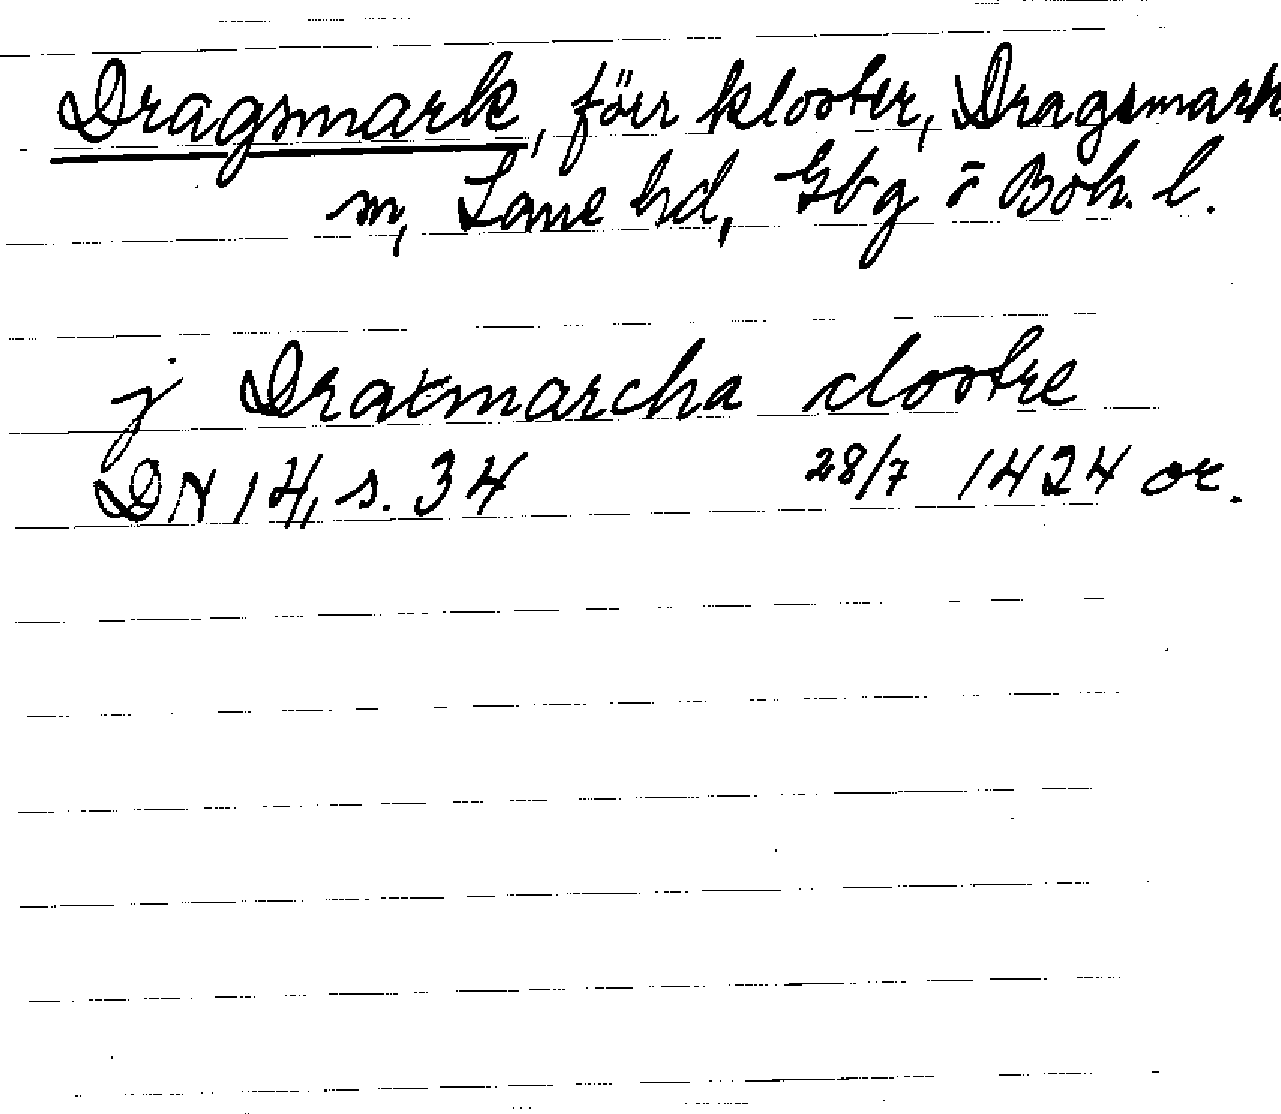 Dragsmark, förr kloster, Dragsmark
sn, Lane hd, Gbg o Boh. l.
j Draxmarcha clostre
DN 14, s. 34 28/7 1424 or.